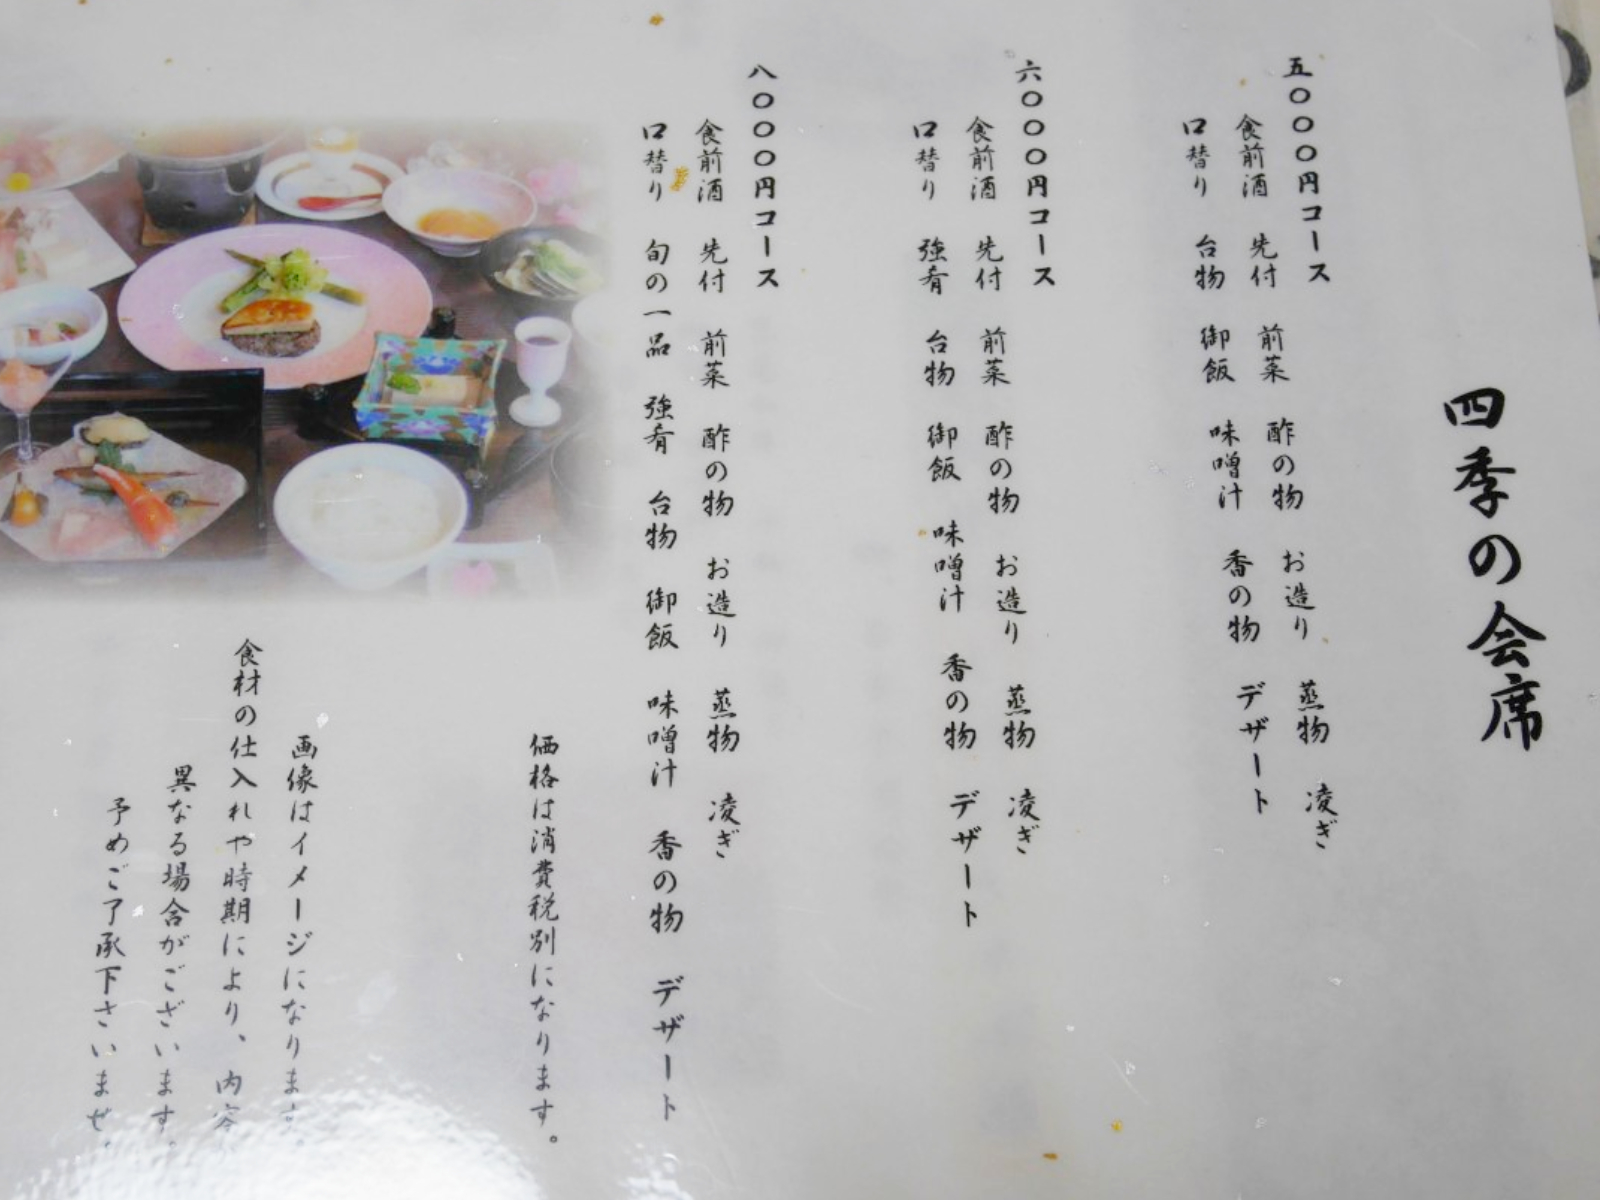 四季の会席
五〇〇〇円コース
食前酒 先付 前菜 酢の物 お造り 蒸物 凌ぎ
口替り 台物 御飯 味噌汁 香の物 デザート
六〇〇〇円コース
食前酒 先付 前菜 酢の物 お造り 蒸物 凌ぎ
口替り 強肴 台物 御飯 味噌汁 香の物 デザート
八〇〇〇円コース
食前酒 先付 前菜 酢の物 お造り 蒸物 凌ぎ
口替り 旬の一品 強肴 台物 御飯 味噌汁 香の物 デザート
価格は消費税別になります。
画像はイメージになります。
食材の仕入れや時期により、内容が
異なる場合がございます。
予めご了承下さいませ。